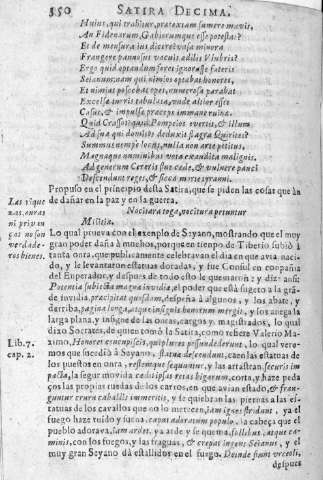 350 SATIRA DECIMA.
Huius, qui trahitur, prætextam sumere mavis,
An Fidenarum, Gabiorumque esse potestas?
Et de mensura ius dicere vasa minora
Frangere pannosus vacuis ædilis Vlubris?
Ergo quid optandum foret ignorasse fateris
Seianum; nam qui nimios optabat honores,
Et nimias poscebat opes, numerosa parabat
Excelsæ turris tabulata, unde altior esset
Casus, & impulsæ præceps immane ruinæ.
Quid Crassos, quid Pompeios vertit, & illum
Ad sua qui domitos deduxit flagra Quirites?
Summus nempe locus, nulla non arte petitus,
Magnaque numinibus vota exaudita malignis.
Ad generum Cereris sine cæde, & vulnere pauci
Descendunt reges, & sicca morte tyranni.
Propuso en el principio desta Satira, que se piden las cosas que àn
de dañar en la paz y en la guerra.
Las riquezas, onras
Nocitura toga, nocitura petuntur
ni privança no son
Militia.
verdaderos bienes.
Lo qual prueva con el exenplo de Seyano, mostrando que el muy
gran poder daña à muchos, porque en tienpo de Tiberio subiò à
tanta onra, que publicamente celebravan el dia en que avia nacido,
y le levantaron estatuas doradas, y fue Consul en conpañia
del Enperador, y despues de todo esto le
Potentia subiecta magna invidiæ, el poder que està sugeto a la grãde
invidia, præcipitat quosdam, despeña à algunos, y los abate, y
derriba, pagina longa, atque insignis honorum mergit, y los anega la
larga plana, y insigne de las onras, cargos, y magistrados, lo qual
dixo Socrates, de quien tomò la Satira, como refiere Valerio Maximo,
Lib. 7. cap. 2.
Honores concupiscis, qui plures pessundederunt, lo qual veremos
que sucediò à Seyano, statuæ descendunt, caen las estatuas de
los puestos en onra, restemque sequuntur, y las arrastran, securis impacta,
la segur movida cædit ipsas rotas bigarum, corta, y haze pedaços
las propias ruedas de los carros, en que avian estado, & franguntur
crura caballis immeritis, y se quiebran las piernas a las estatuas
de los cavallos que no lo merecen, iam ignes strident, ya el
fuego haze ruido y suena, caput adoratum populo, la cabeça que el
pueblo adorava, iam ardet, ya arde y se quema, follibus, atque caminis,
con los fuegos, y las fraguas, & crepat ingens Seianus, y el
muy gran Seyano dà estallidos en el fuego. Deinde fiunt urceoli,
despues